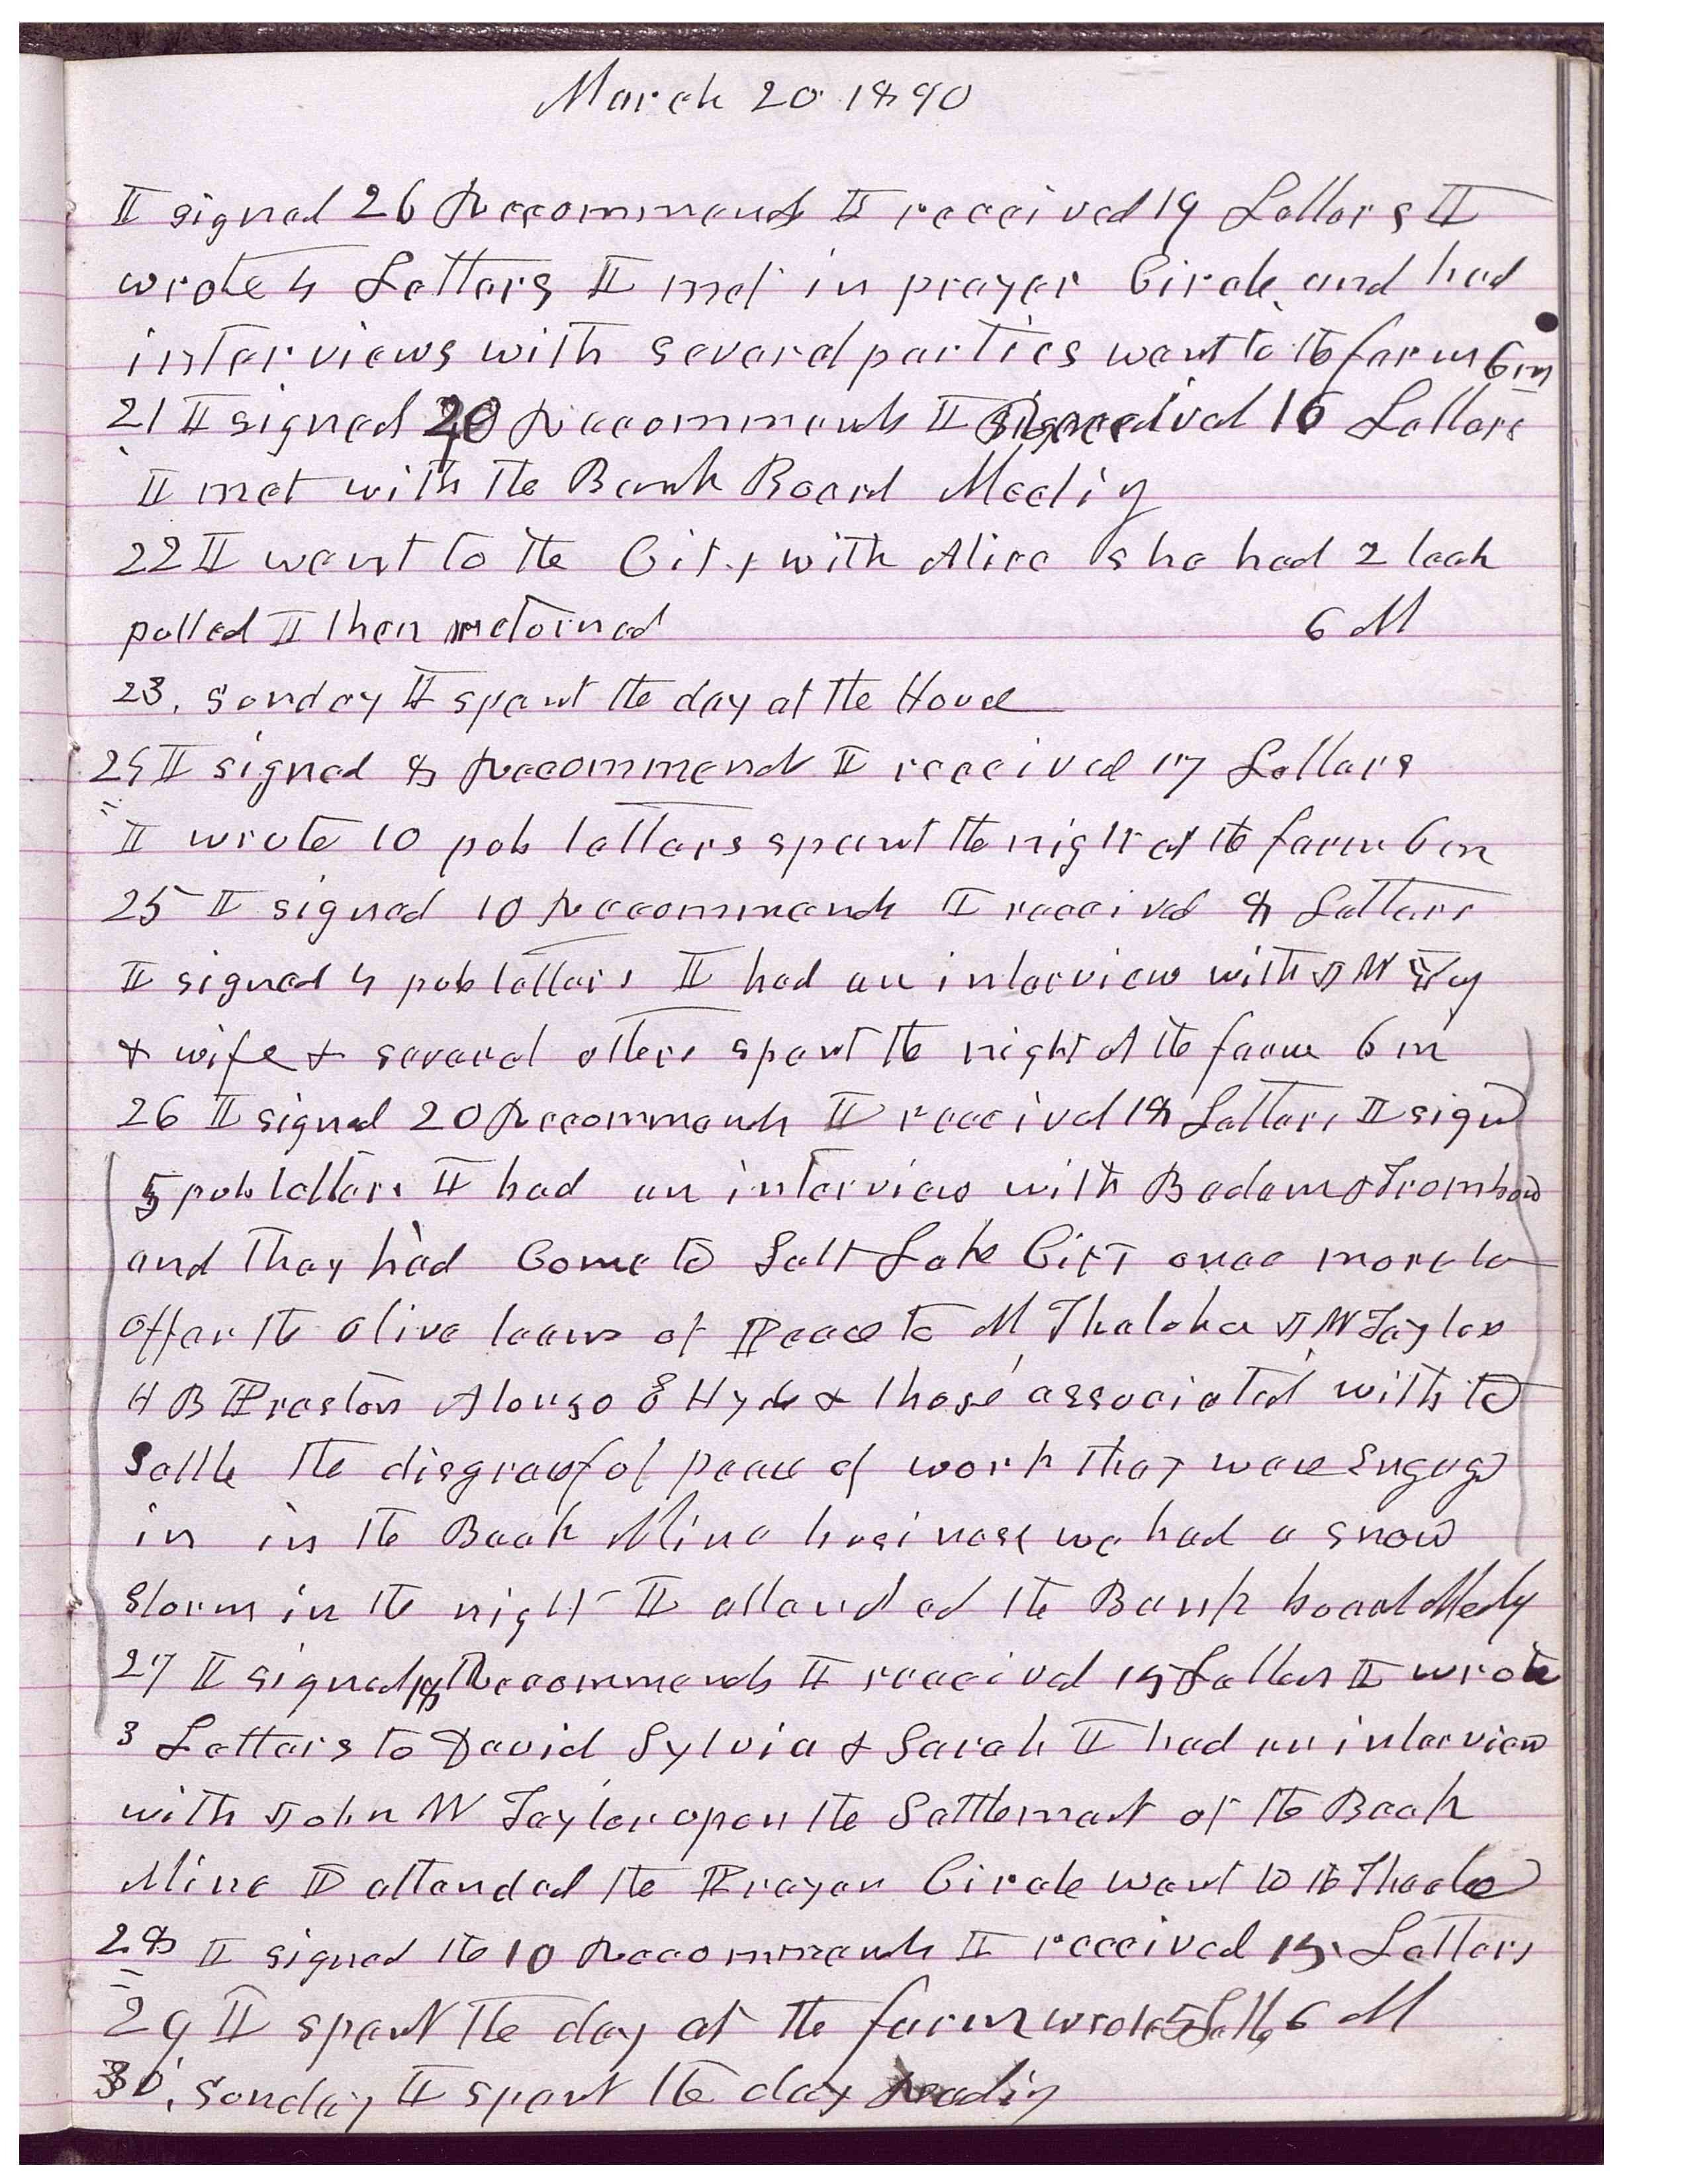 March 20 1890
I signed 26 Recommends I received 19 Letters I
wrote 4 Letters I met in prayer Circle and had
interviews with several parties went to the farm 6 m
21 I signed 20 Recommends I Received 16 Letters
I met with the Bank Board Meetig
22 I went to the City with Alice she had 2 teeth
pulled I then returned 6 M
23. Sunday I spent the day at the House
24 I signed 8 Recommends I received 17 Letters
I wrote 10 pub letters spent the night at the farm 6 m
25 I signed 10 Recommends I received 8 Letters
I signed 4 pub letters I had an interview with J W
& wife & several others spent the night at the farm 6 m
26 I signed 20 Recommends I received 18 Letters I signd
5 pub letters I had an interview with Badam & Trombow
and They had Come to Salt Lake City once more to
offer the olive leaves of Peace to M Thatcher J W Taylor
H B Preston Alonzo E Hyde & those associated with to
Settle the disgraceful peace of work they were Engagd
in in the Beck Mine business we had a snow
storm in the night I attended the Bank board Metig
27 I signed 18 Recommends I received 15 Letters I wrote
3 Letters to David Sylvia & Sarah I had an interview
with John W Taylor upon the Settlement of the Beck
Mine I attended the Prayer Circle went to the Theater
28 I signed the 10 Recommends I received 15 Letters
29 I spent the day at the farm wrote 5 Letts 6 M
30. Sunday I spent the day Readig